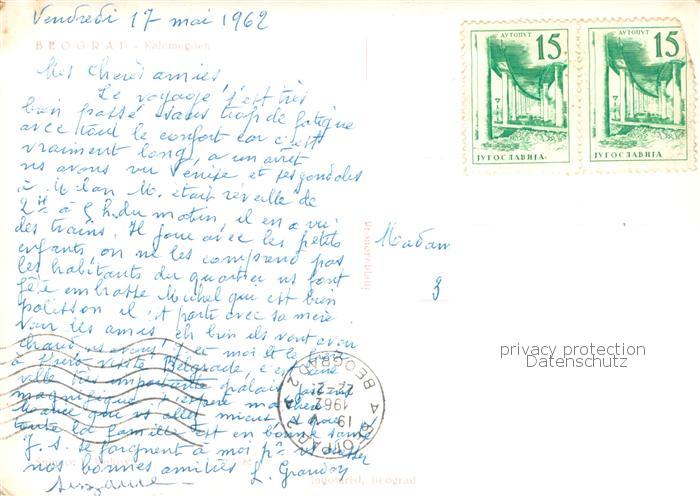 Vendredi 17 mai 1962
BEOGRAD - Kalemegdan
Mes chères amies
Le voyage s'est très
bien passé sans trop de fatigue
avec tout le confort car c'est
vraiment long, a un arrêt
ns avons vu Venise et ses gondoles
à Milan M. était réveillé de
2H à 5h. du matin, il en a vu
des trains. Il joue avec les petits
enfants, on ne les comprend pas
les habitants du quartier ns font
fête embrasse Michel qui est bien
polisson il est parti avec sa mère
voir les amis eh bien ils vont avoir
chaud
visite Belgrade, c'est une
ville très importante palais
magnifique j'espère ma chère
que vs allez mieux
toute la famille est en bonne santé
J. S. se joignent à moi pr vs
nos bonnes amitiés L.
Suzanne
15
АУТОПУТ
ЈУГОСЛАВИЈА
15
АУТОПУТ
ЈУГОСЛАВИЈА
Madam
g
privacy protection
Datenschutz
БЕОГРАД 2
BEOGRAD 2
19 V
1962
22-2
Beograd